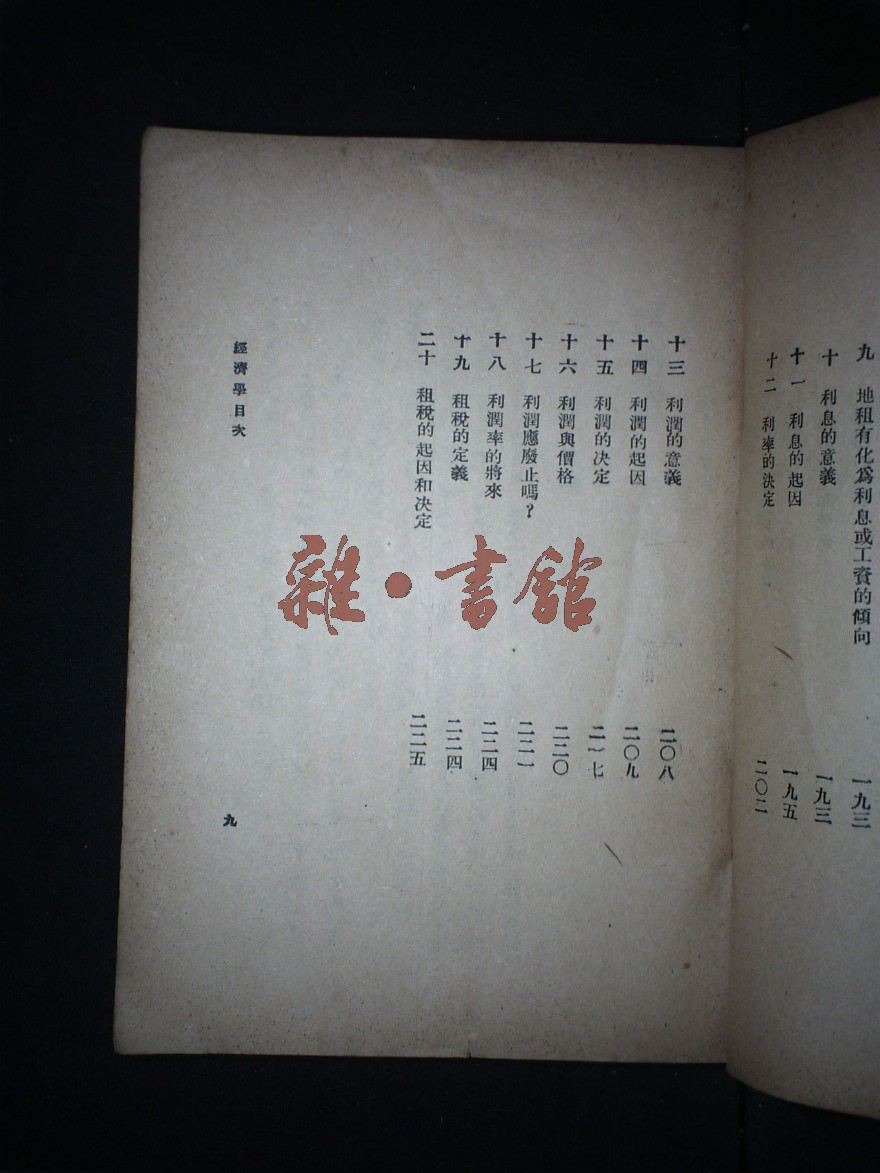 九 地租有化爲利息或工資的傾向 一九三
十 利息的意義 一九三
十一 利息的起因 一九五
十二 利率的決定 二〇二
十三 利潤的意義 二〇八
十四 利潤的起因 二〇九
十五 利潤的決定 二一七
十六 利潤與價格 二二〇
十七 利潤應廢止嗎？ 二二一
十八 利潤率的將來 二二四
十九 租稅的定義 二二四
二十 租稅的起因和決定 二二五
經濟學目次
九
雜·書館